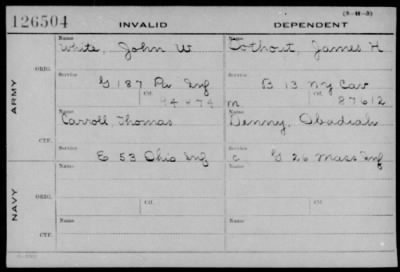 (3-M-3)
126504 INVALID DEPENDENT
Name Name
White, John W Cothout, James H
ORIG. Service Service
G 187 Pa Inf B 13 NY Cav
Ctf. Ctf.
94474 m 87612
ARMY
Name Name
Carroll, Thomas Denny, Obadiah
CTF. Service Service
E 53 Ohio Inf C G 26 Mass Inf
Name Name
ORIG.
Ctf. Ctf.
NAVY
Name Name
CTF.